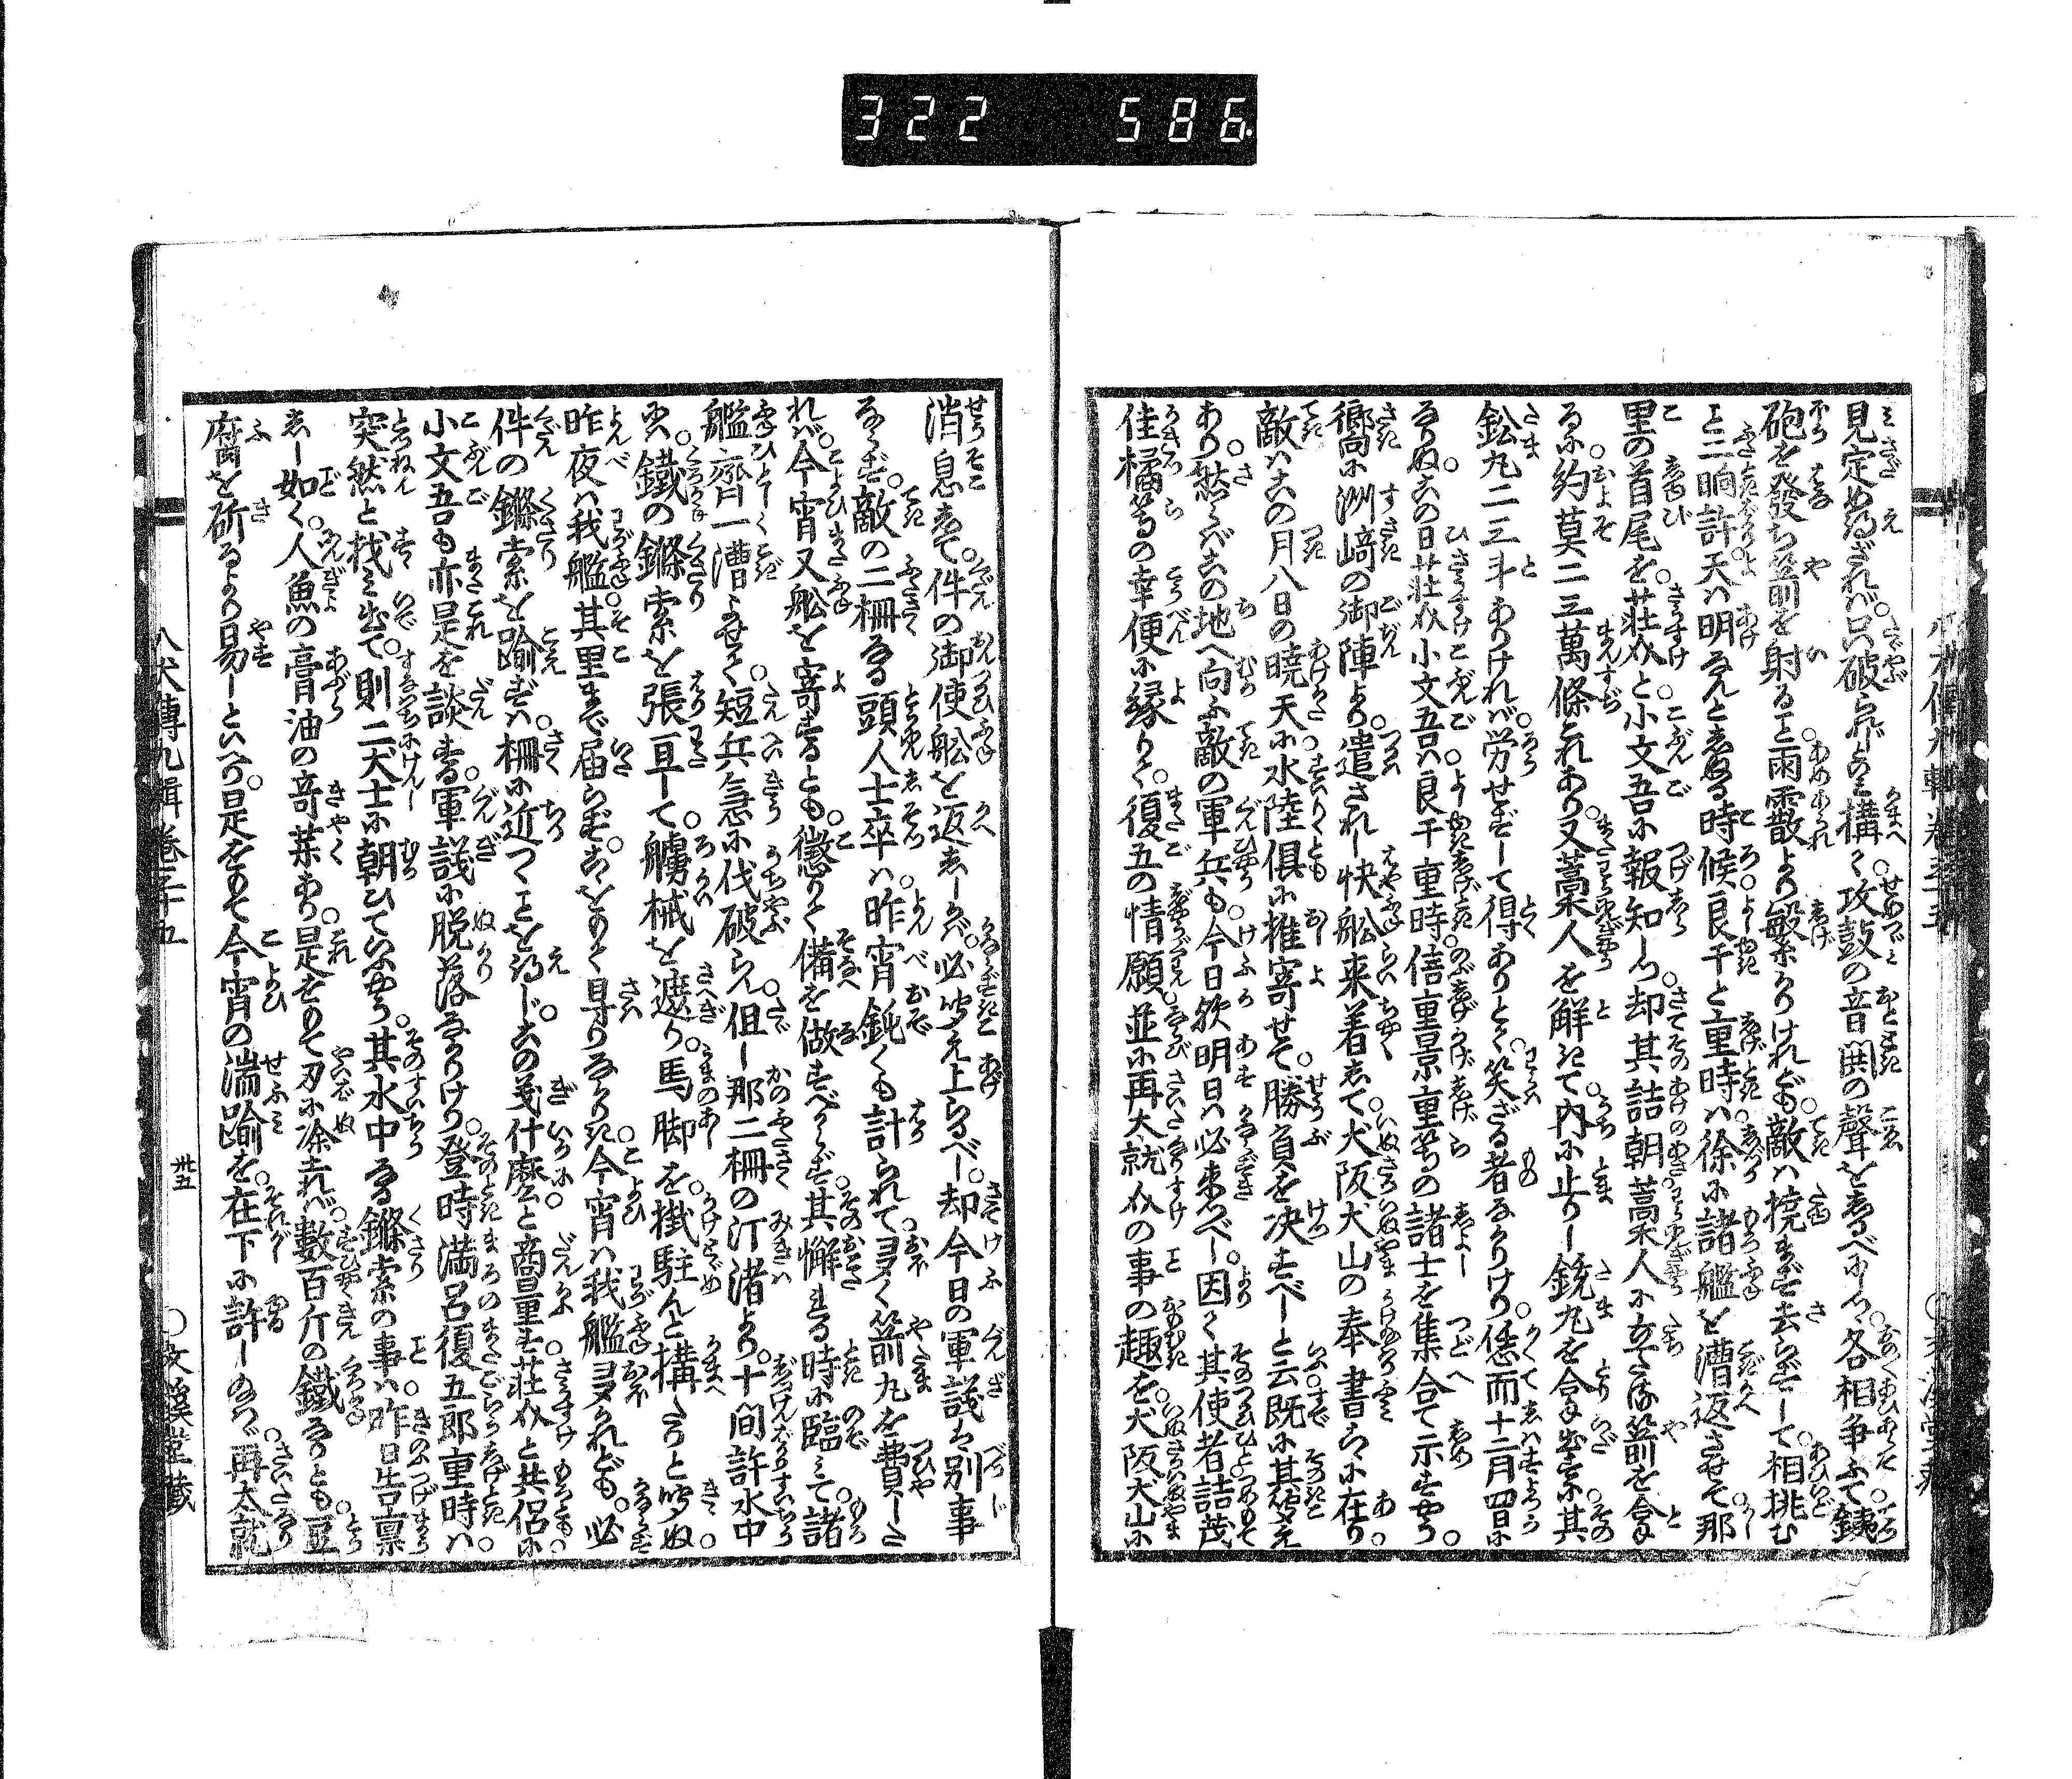 322 586.
見定め得ざれバ只破られじとのミ構て攻鼓の音鬨の聲をしるべにしつ各相争ふて銕
砲を發ち箭を射ること雨霰より繁かりけれども敵ハ撓まず去らずして相挑む
こと二晌許天ハ明なんとしぬる時候良干と重時ハ徐に諸艦を漕返させて那
里の首尾を莊介と小文吾に報知しつ却其詰朝藁人に立たる箭を含に
るに約莫二三萬條これあり又藁人を解にて内に止りし鋭丸を含出すに其
鉛丸二三斗ありけれバ労せずして得ありとて笑ざる者なかりけり恁而十二月四日に
なりぬこの日莊介小文吾ハ良干重時倍重景重等の諸士を集合て示すやう
嚮に洲﨑の御陣より遣されし快舩来着して犬阪犬山の奉書らに在り
敵ハこの月八日の暁天に水陸俱に推寄せて勝負を决すべしと云既に其聞え
あり然らバこの地へ向ふ敵の軍兵も今日歟明日ハ必来べし因て其使者詰茂
佳橘等の幸便に縁りて復五の情願並に再太就介の事の趣を犬阪犬山に
消息して件の御使舩を返しゝかバ必聞え上らるべし却今日の軍議ハ別事
ならず敵の二柵なる頭人士卒ハ昨宵鈍くも計られて夛く箭丸を費しゝ
れバ今宵又舩を寄するとも懲りて備を做すべからず其懈れる時に臨ミて諸
艦齊一漕よせて短兵急に伐破らん但し那二柵の汀渚より十間許水中
に鐵の鏈索を張亘して艣械を遮り馬脚を掛駐んと構たりと聞ぬ
昨夜ハ我艦其里まで届らずこをもて㝵りなかりき今宵ハ我艦夛かれども必
件の鏈索を踰ずハ柵に近つくことを得じこの義什麽と商量す莊介と共侶に
小文吾も亦是を談する軍議に脱落なかりけり登時満呂復五郎重時ハ
突然と找ミ出て則二犬士に朝ひていふやう其水中なる鏈索の事ハ昨日告稟
しゝ如く人魚の膏油の竒薬あり是をもて刃に凃れバ數百斤の鐵なりとも豆
腐を斫るより易しといへり是をもて今宵の湍踰を在下に許しぬかバ再太就
八犬傳九輯卷三十五
卅五
○文溪堂藏